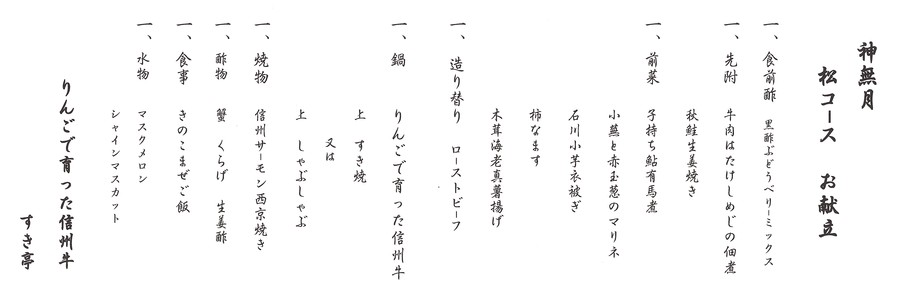 神無月
松コース　お献立
一、食前酢　黒酢ぶどうベリーミックス
一、先附　牛肉はたけしめじの佃煮
秋鮭生姜焼き
一、前菜　子持ち鮎有馬煮
小蕪と赤玉葱のマリネ
石川小芋衣被ぎ
柿なます
木茸海老真薯揚げ
一、造り替り　ローストビーフ
一、鍋　りんごで育った信州牛
上　すき焼
又は
上　しゃぶしゃぶ
一、焼物　信州サーモン西京焼き
一、酢物　蟹　くらげ　生姜酢
一、食事　きのこまぜご飯
一、水物　マスクメロン
シャインマスカット
りんごで育った信州牛
すき亭